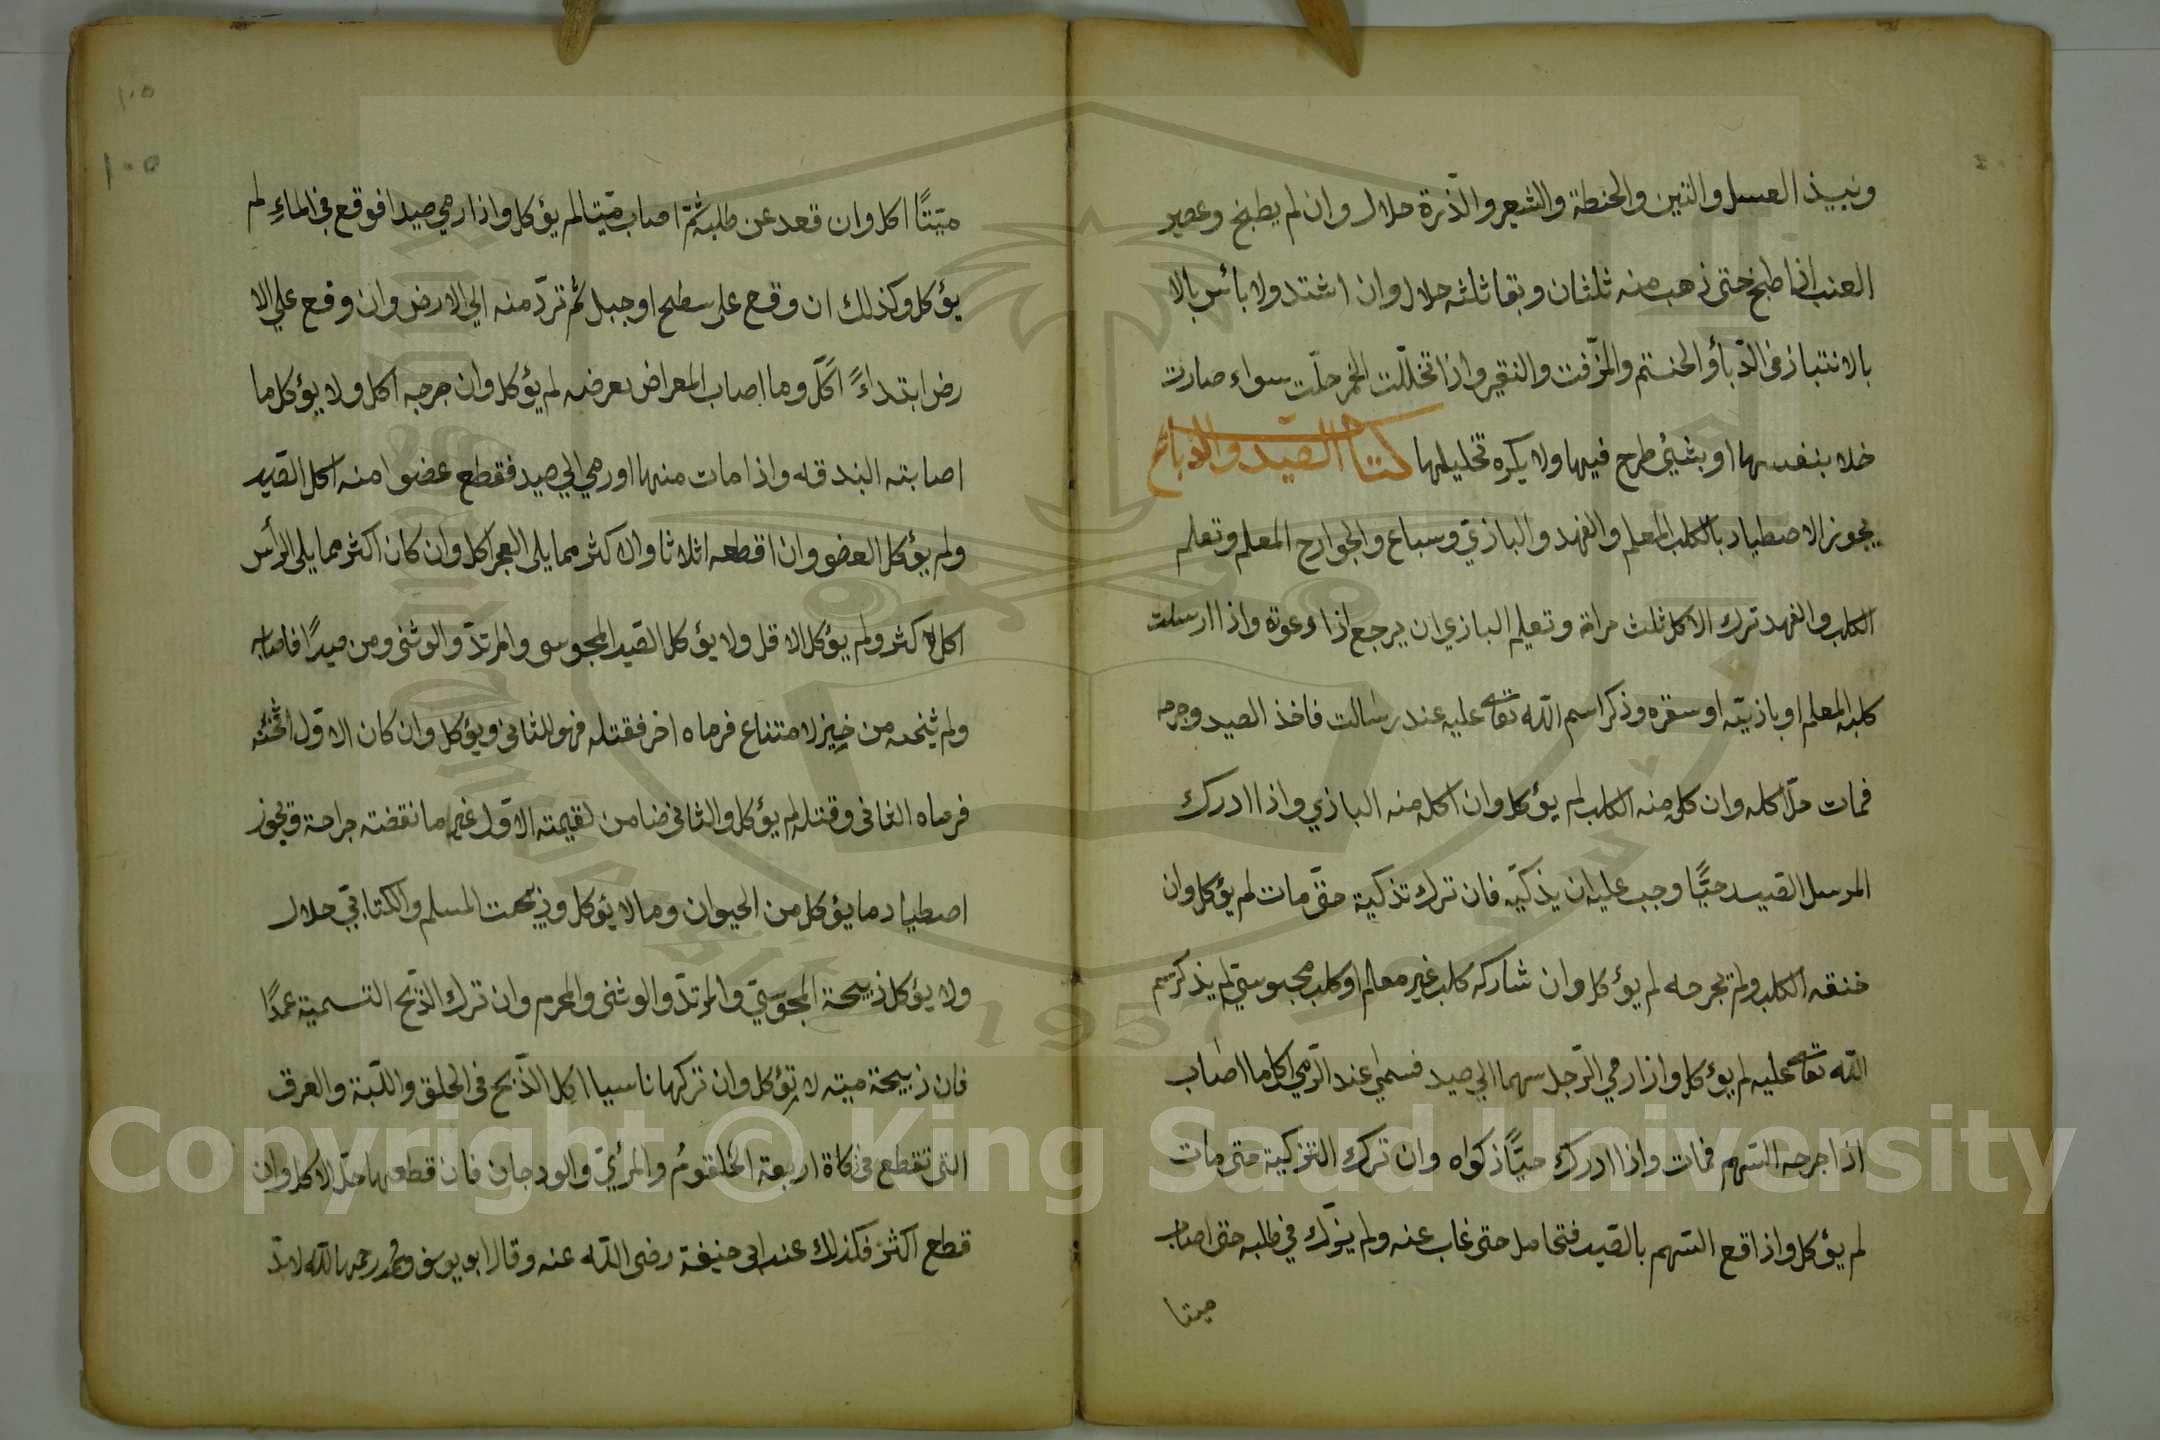 ونبيذ العسل والتين والحنطة والشعير والذّرة حلال وان لم يطبخ وعصير
العنب اذا طبخ حتى ذهب منه ثلثان وبقا ثلثه حلال وان اشتد ولا بأس بالا
بالانتباذ فى الدّبأ والحنتم والمزّفت والنقير واذا تخلّلت الخمر حلّت سواء صارت
خلا بنفسها او بشيئ طرح فيها ولا يكره تخليلها كتاب الصّيد والذبائح
يجوز الاصطياد بالكلب المعلم والفهد والبازيّ وسباع والجوارح المعلم وتعلم
الكلب والفهد ترك الاكل ثلث مراة وتعلم البازي ان يرجع اذا دعوة واذا ارسلت
كلبه المعلم او بازيّه او سقره وذكر اسم الله تعالى عليه عند رسالت فاخذ الصيد وجرحه
فمات حلّ اكله وان كل منه الكلب لم يؤكل وان اكله منه البازي واذا ادرك
المرسل الصّيد حيًّا وجب عليه ان يذكّيه فان ترك تذكية حتّى مات لم يؤكل وان
خنقه الكلب ولم يجرحه لم يؤكل وان شاركه كلب غير معلم او كلب مجبوستي لم يذكر سم
الله تعالى عليه لم يؤكل واذا رمي الرّجل سهما الي صيد فسمى عند الرّمي اكل ما اصاب
اذا جرحه السّهم فمات واذا ادرك حيًّا ذكواه وان ترك التزكية حتى مات
لم يؤكل واذا قع السّهم بالصّيد فتحامل حتى غاب عنه ولم يزّك في طلبه حتى اصابه
ميتا
١٠٥
١٠٥
ميّتًا اكل وان قعد عن طلبه ثمّ اصاب ميّتا لم يؤكل واذا رمي صيدا فوقع فى الماءِ لم
يؤكل وكذلك ان وقع على سطح او جبل ثم تردّ منه الي الارض وان وقع علي الا
رض ابتداءً اكّل وما اصاب المعراض بعرضه لم يؤكل وان جرحه اكل ولا يؤكل ما
اصابته البندقه واذا مات منها اورمي الي صيد فقطع عضوا منه اكل الصّيد
ولم يؤكل العضو وان اقطعه اثلاثا والاكثر مما يلى العجز اكل وان كان اكثر مما يلى الرأس
اكل الاكثر ولم يؤكل الاقل ولا يؤكل الصّيد المجوسى والمرتدّ والوثنى ومن صيدًا فاصابه
ولم يثنحه من خيز لامتناع فرماه اخر فقتله فهو للثانى ويؤكل وان كان الاوّل اثخنه
فرماه الثانى وقتله لم يؤكل والثانى ضامن لقيمته الاوّل غير ما نقضته جراحة ويجوز
اصطياد ما يؤكل من الحيوان وما لا يؤكل وذبيحت المسلم والكتابيّ حلال
ولا يؤكل ذبيحة المجوسيّ والمرتدّ والوثنى والمحرم وان ترك الذّبح التسمية عمدًا
فان ذبيحة ميته لا تؤكل وان تركها ناسيا اكل الذّبح فى الحلق واللّبة والعرق
التى تقطع فى ذكاة اربعة الحلقومُ والمرئيّ والودجان فان قطعها حلّ الاكل وان
قطع اكثر فكذلك عند ابى حنيفة رضى الله عنه وقال ابو يوسف ومحمد رحمهما الله لا بدّ
Copyright © King Saud University
1957